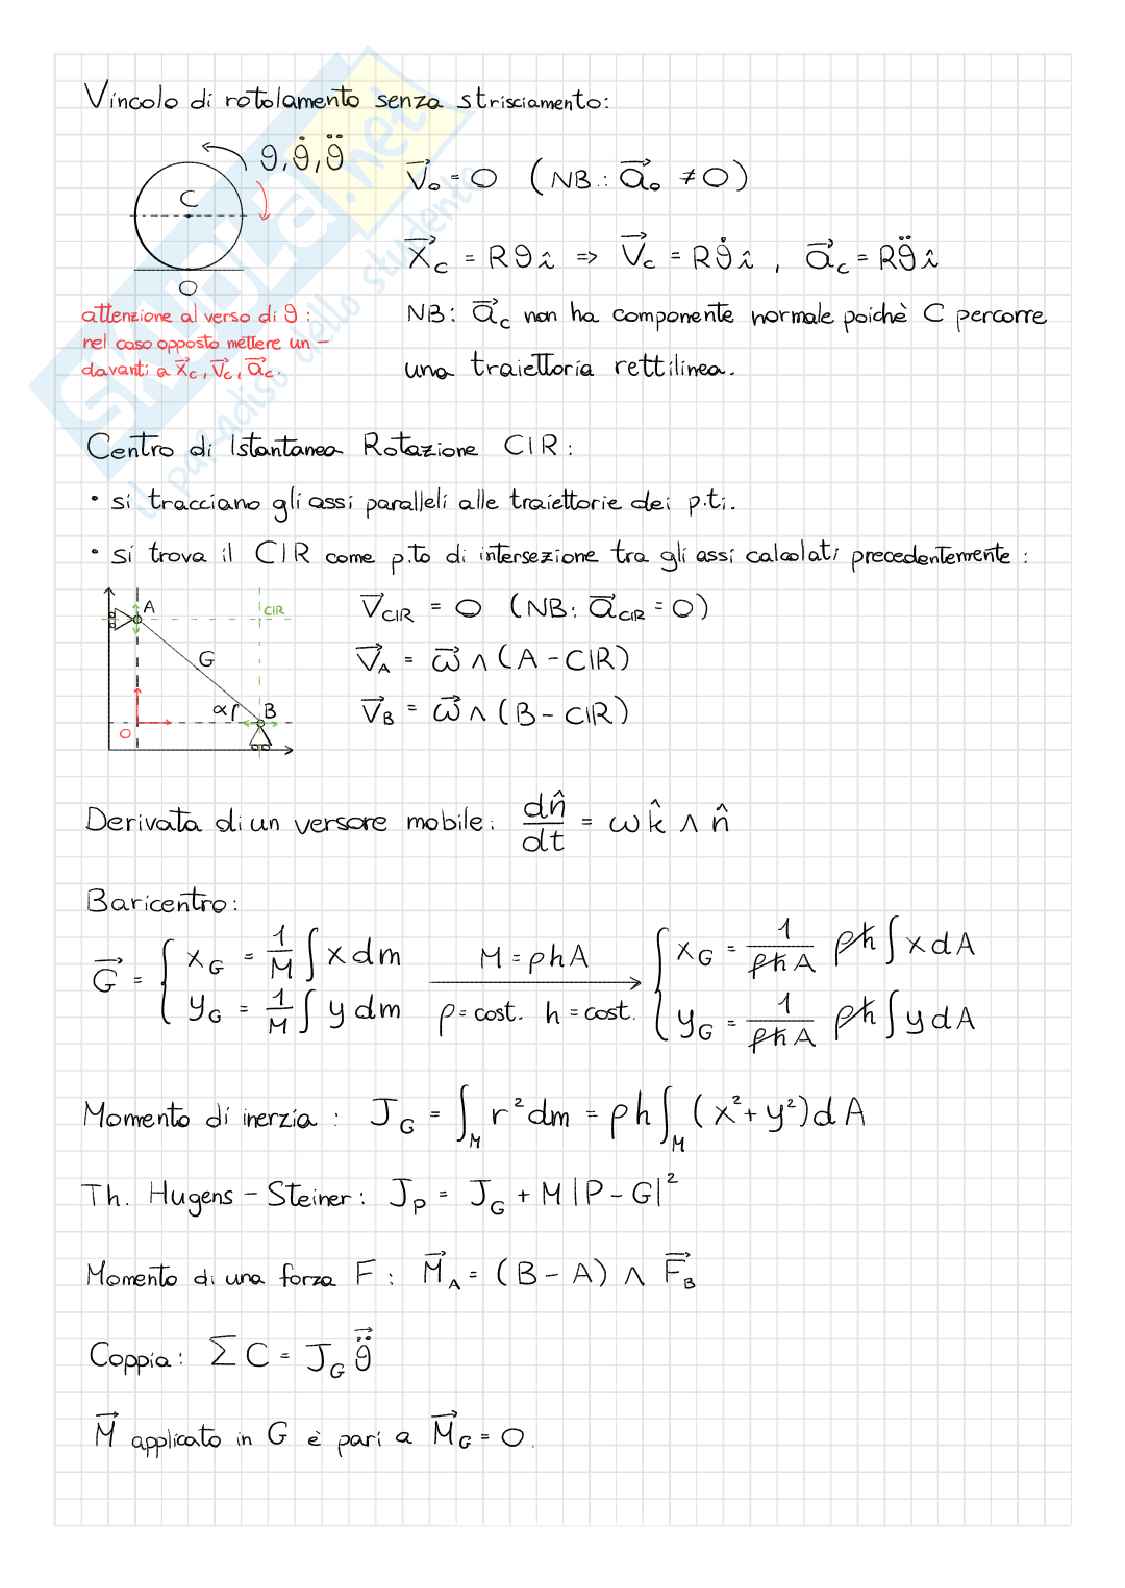 Vincolo di rotolamento senza strisciamento:
ϑ, ϑ̇, ϑ̈
C
O
V⃗₀ = 0 (NB.: a⃗₀ ≠ 0)
X⃗_C = Rϑ î => V⃗_C = Rϑ̇ î , a⃗_C = Rϑ̈ î
attenzione al verso di ϑ:
nel caso opposto mettere un -
davanti a X⃗_C, V⃗_C, a⃗_C.
NB: a⃗_C non ha componente normale poichè C percorre
una traiettoria rettilinea.
Centro di Istantanea Rotazione CIR:
• si tracciano gli assi paralleli alle traiettorie dei p.ti.
• si trova il CIR come p.to di intersezione tra gli assi calcolati precedentemente:
A
CIR
G
α
B
O
V⃗_CIR = 0 (NB: a⃗_CIR = 0)
V⃗_A = ω⃗ ∧ (A - CIR)
V⃗_B = ω⃗ ∧ (B - CIR)
Derivata di un versore mobile: dn̂/dt = ω k̂ ∧ n̂
Baricentro:
G⃗ = { x_G = 1/M ∫ x dm
y_G = 1/M ∫ y dm
M = ρhA
ρ = cost. h = cost.
{ x_G = 1/(ρhA) ρh ∫ x dA
y_G = 1/(ρhA) ρh ∫ y dA
Momento di inerzia: J_G = ∫_M r² dm = ρh ∫_M (x² + y²) dA
Th. Hugens - Steiner: J_P = J_G + M |P - G|²
Momento di una forza F: M⃗_A = (B - A) ∧ F⃗_B
Coppia: Σ C = J_G ϑ⃗̈
M⃗ applicato in G è pari a M⃗_G = 0.
skuola.net
il paradiso dello studente